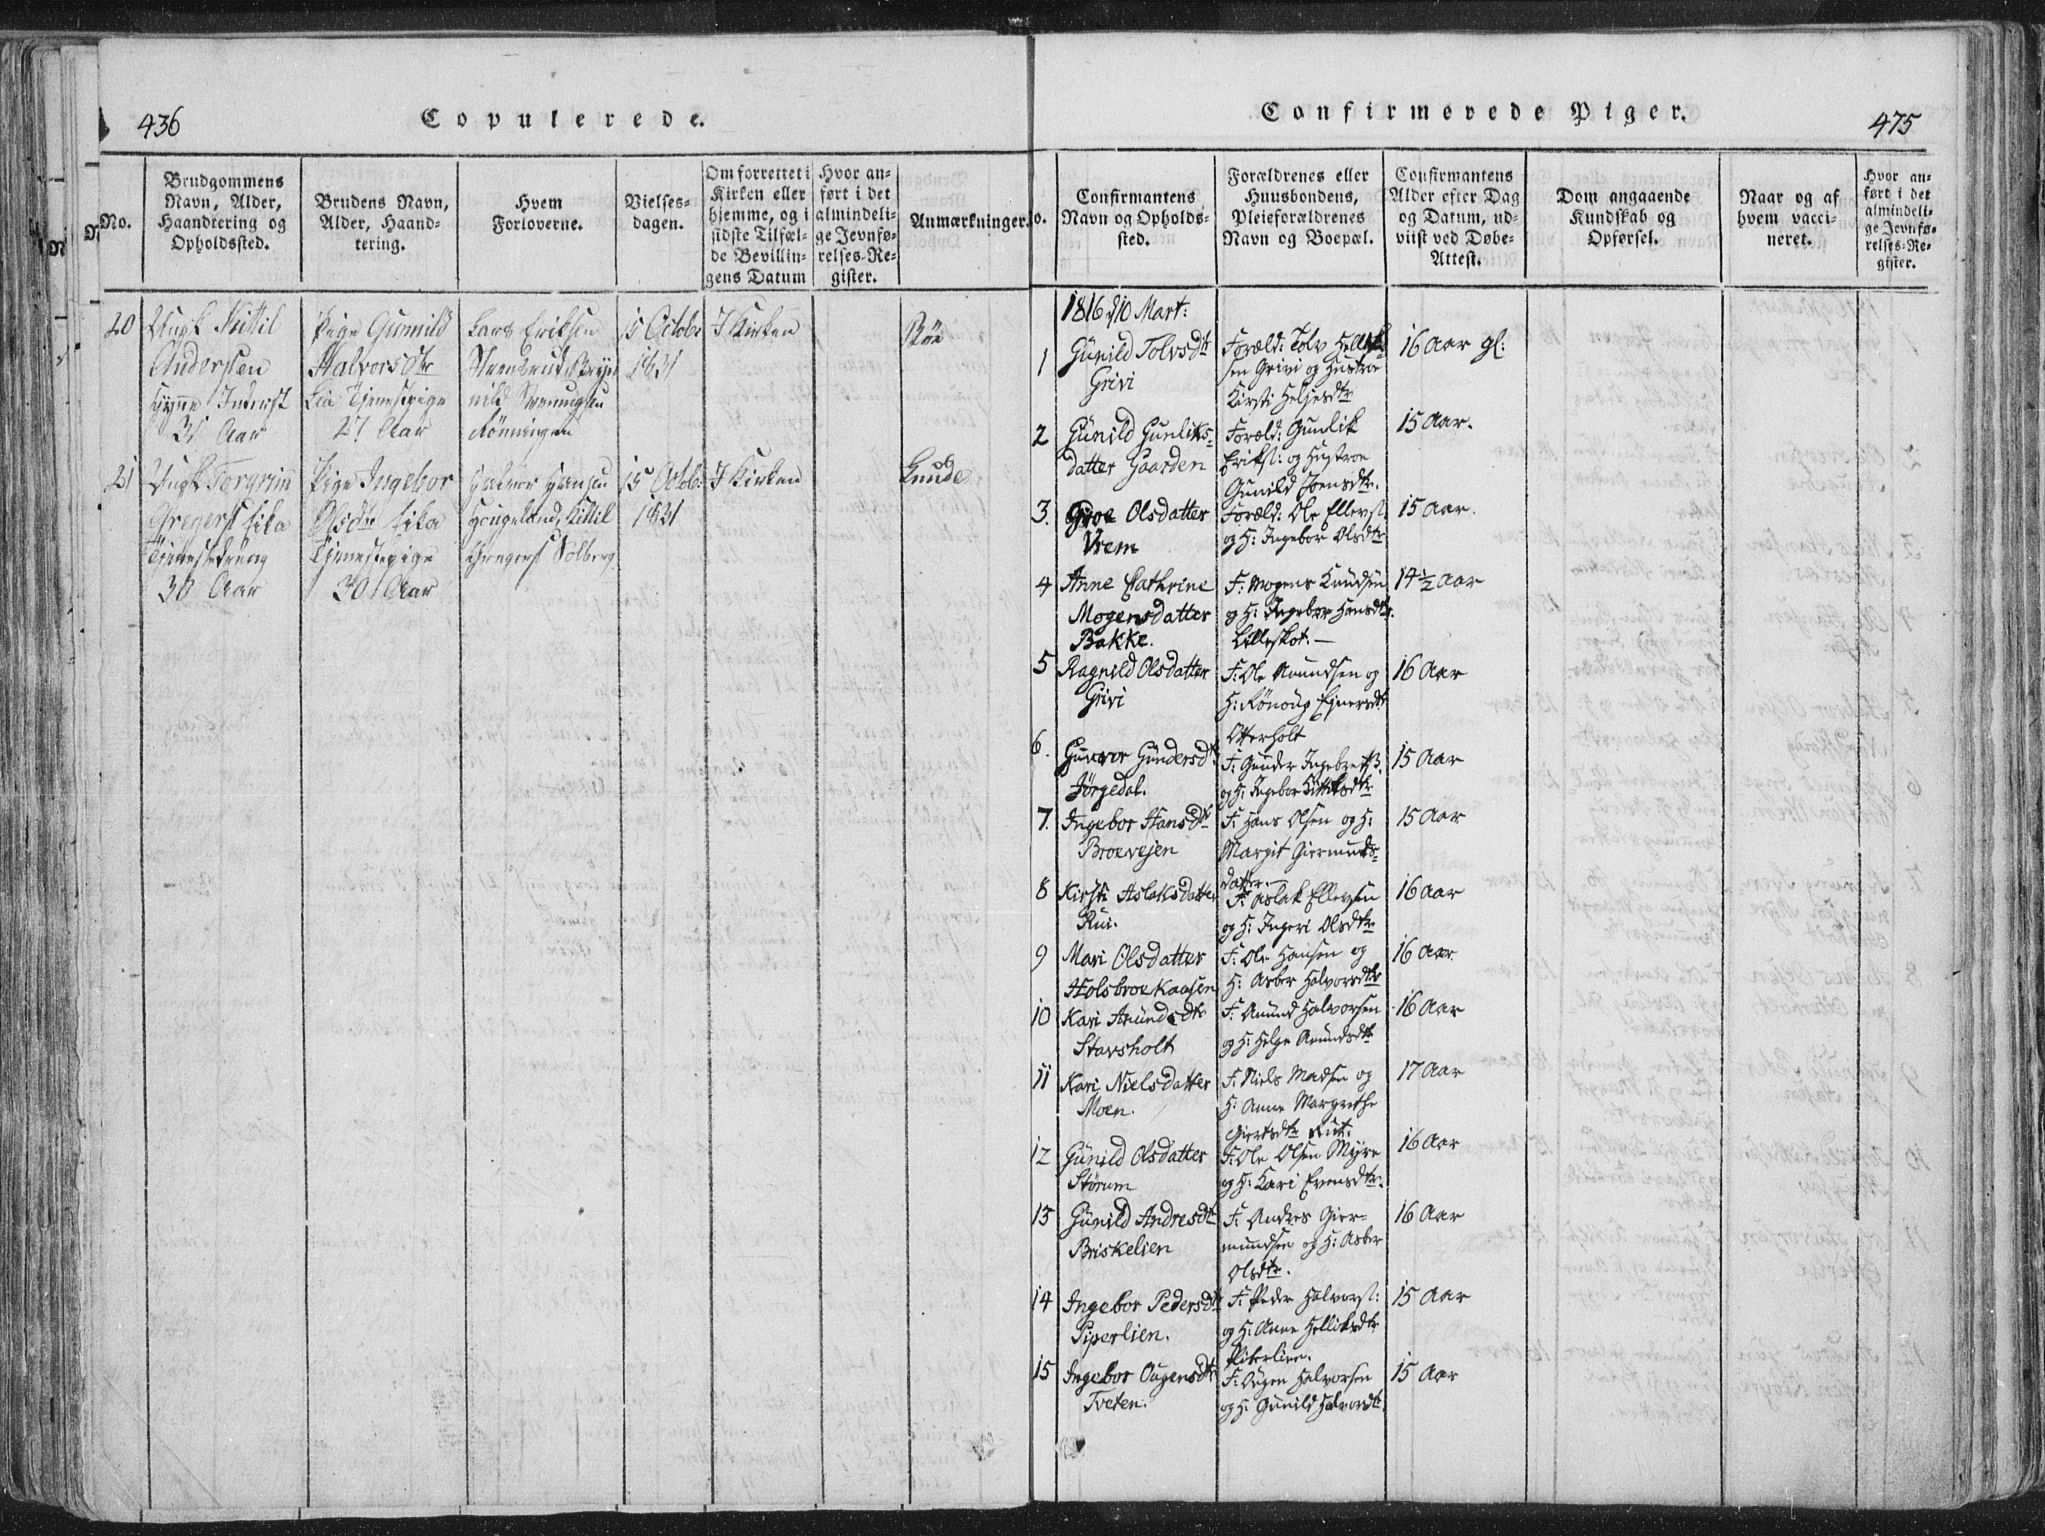 436
Copulerede.
No.
Brudgommens
Navn, Alder,
Haandtering og
Opholdssted.
Brudens Navn,
Alder, Haand-
tering.
Hvem
Forloverne.
Vielses-
dagen.
Om forrettet i
Kirken eller
hjemme, og i
sidste Tilfæl-
de Bevillin-
gens Datum
Hvor an-
ført i det
almindeli-
ge Jevnfø-
relses-Re-
gister.
Anmærkninger.
20
Ungk Kittil
Anderssen
31 Aar
Pige Gunnild
Halvorsdtr
Lia Tjenestpige
27 Aar
Lars Eriksen
Rönningen
15 Octobr
1831
I Kirken
Böe
21
Ungk Torgrim
Gregers Lika
30 Aar
Pige Ingebor
Olsdtr Lika
Tjenestepige
30 Aar
Halvor Hansen
Haugeland, Kittil
Gregers Solberg
15 Octobr
1831
I Kirken
Lunde
475
Confirmerede Piger.
o.
Confirmantens
Navn og Opholds-
sted.
Forældrenes eller
Huusbondens,
Pleieforældrenes
Navn og Boepæl.
Confirmantens
Alder efter Dag
og Datum, ud-
viist ved Døbe-
Attest.
Dom angaaende
Kundskab og
Opførsel.
Naar og af
hvem vacci-
neret.
Hvor an-
ført i det
almindeli-
ge Jevnfø-
relses-Re-
gister.
1816 d 10 Mart:
1
Günild Tolvsdtr
Grivi
Foræld: Tolv
sen Grivi og Hustroe
Kirsti Heljesdtr
16 Aar gl:
2
Günild Gunliks-
datter Gaarden
Foræld: Gunlik
Eriks: og Hustroe
Gunild Joensdtr.
15 Aar.
3.
Groe Olsdatter
Vrem
Foræld: Ole Ellevs:
og H: Ingebor Olsdtr
15 Aar.
4
Anne Cathrine
Mogensdatter
Bakke.
F: Mogens Knudsøn
og H: Ingebor Hansdtr.
Lilleskot. —
14 ½ Aar
5
Ragnild Olsdatter
Grivi
F: Ole Amundsen og
H: Rönoug Ejnersdtr
Otterholt
16 Aar
6.
Guvor Gündersdtr
Jörgedal.
F: Gunder Ingebretss.
og H: Ingebor Kittilsdtr
15 Aar
7.
Ingebor Hansdtr
Broevejen
F: Hans Olsen og H:
Margit Giermunds-
datter.
15 Aar
8
Kirsti Aslaksdatter
Rui.
F: Aslak Ellevsen
og H: Ingeri Olsdtr
16 Aar
9
Mari Olsdatter
Holsbroekaasen
F: Ole Hansen og
H: Asber Halvorsdtr
16 Aar
10
Kari Amündsdtr
Stavsholt
F: Amund Halvorsen
og H: Helge Amundsdtr
16 Aar
11
Kari Nielsdatter
Moen.
F: Niels Madsen og
H: Anne Margrethe
Giertsdtr Rui:
17 Aar
12
Günild Olsdatter
Störum
F: Ole Olsen Myre
og H: Kari Evensdtr.
16 Aar
13
Günild Andresdtr
Briskelien
F: Andres Gier-
mundsen og H: Asber
Olsdtr.
16 Aar
14
Ingebor Pedersdtr
Piperlien.
F: Peder Halvors:
og H: Anne Helliksdtr
Piberlien.
15 Aar
15
Ingebor Ougensdtr
Tveten.
F: Ougen Halvorsen
og H: Gunild Halvordtr.
15 Aar